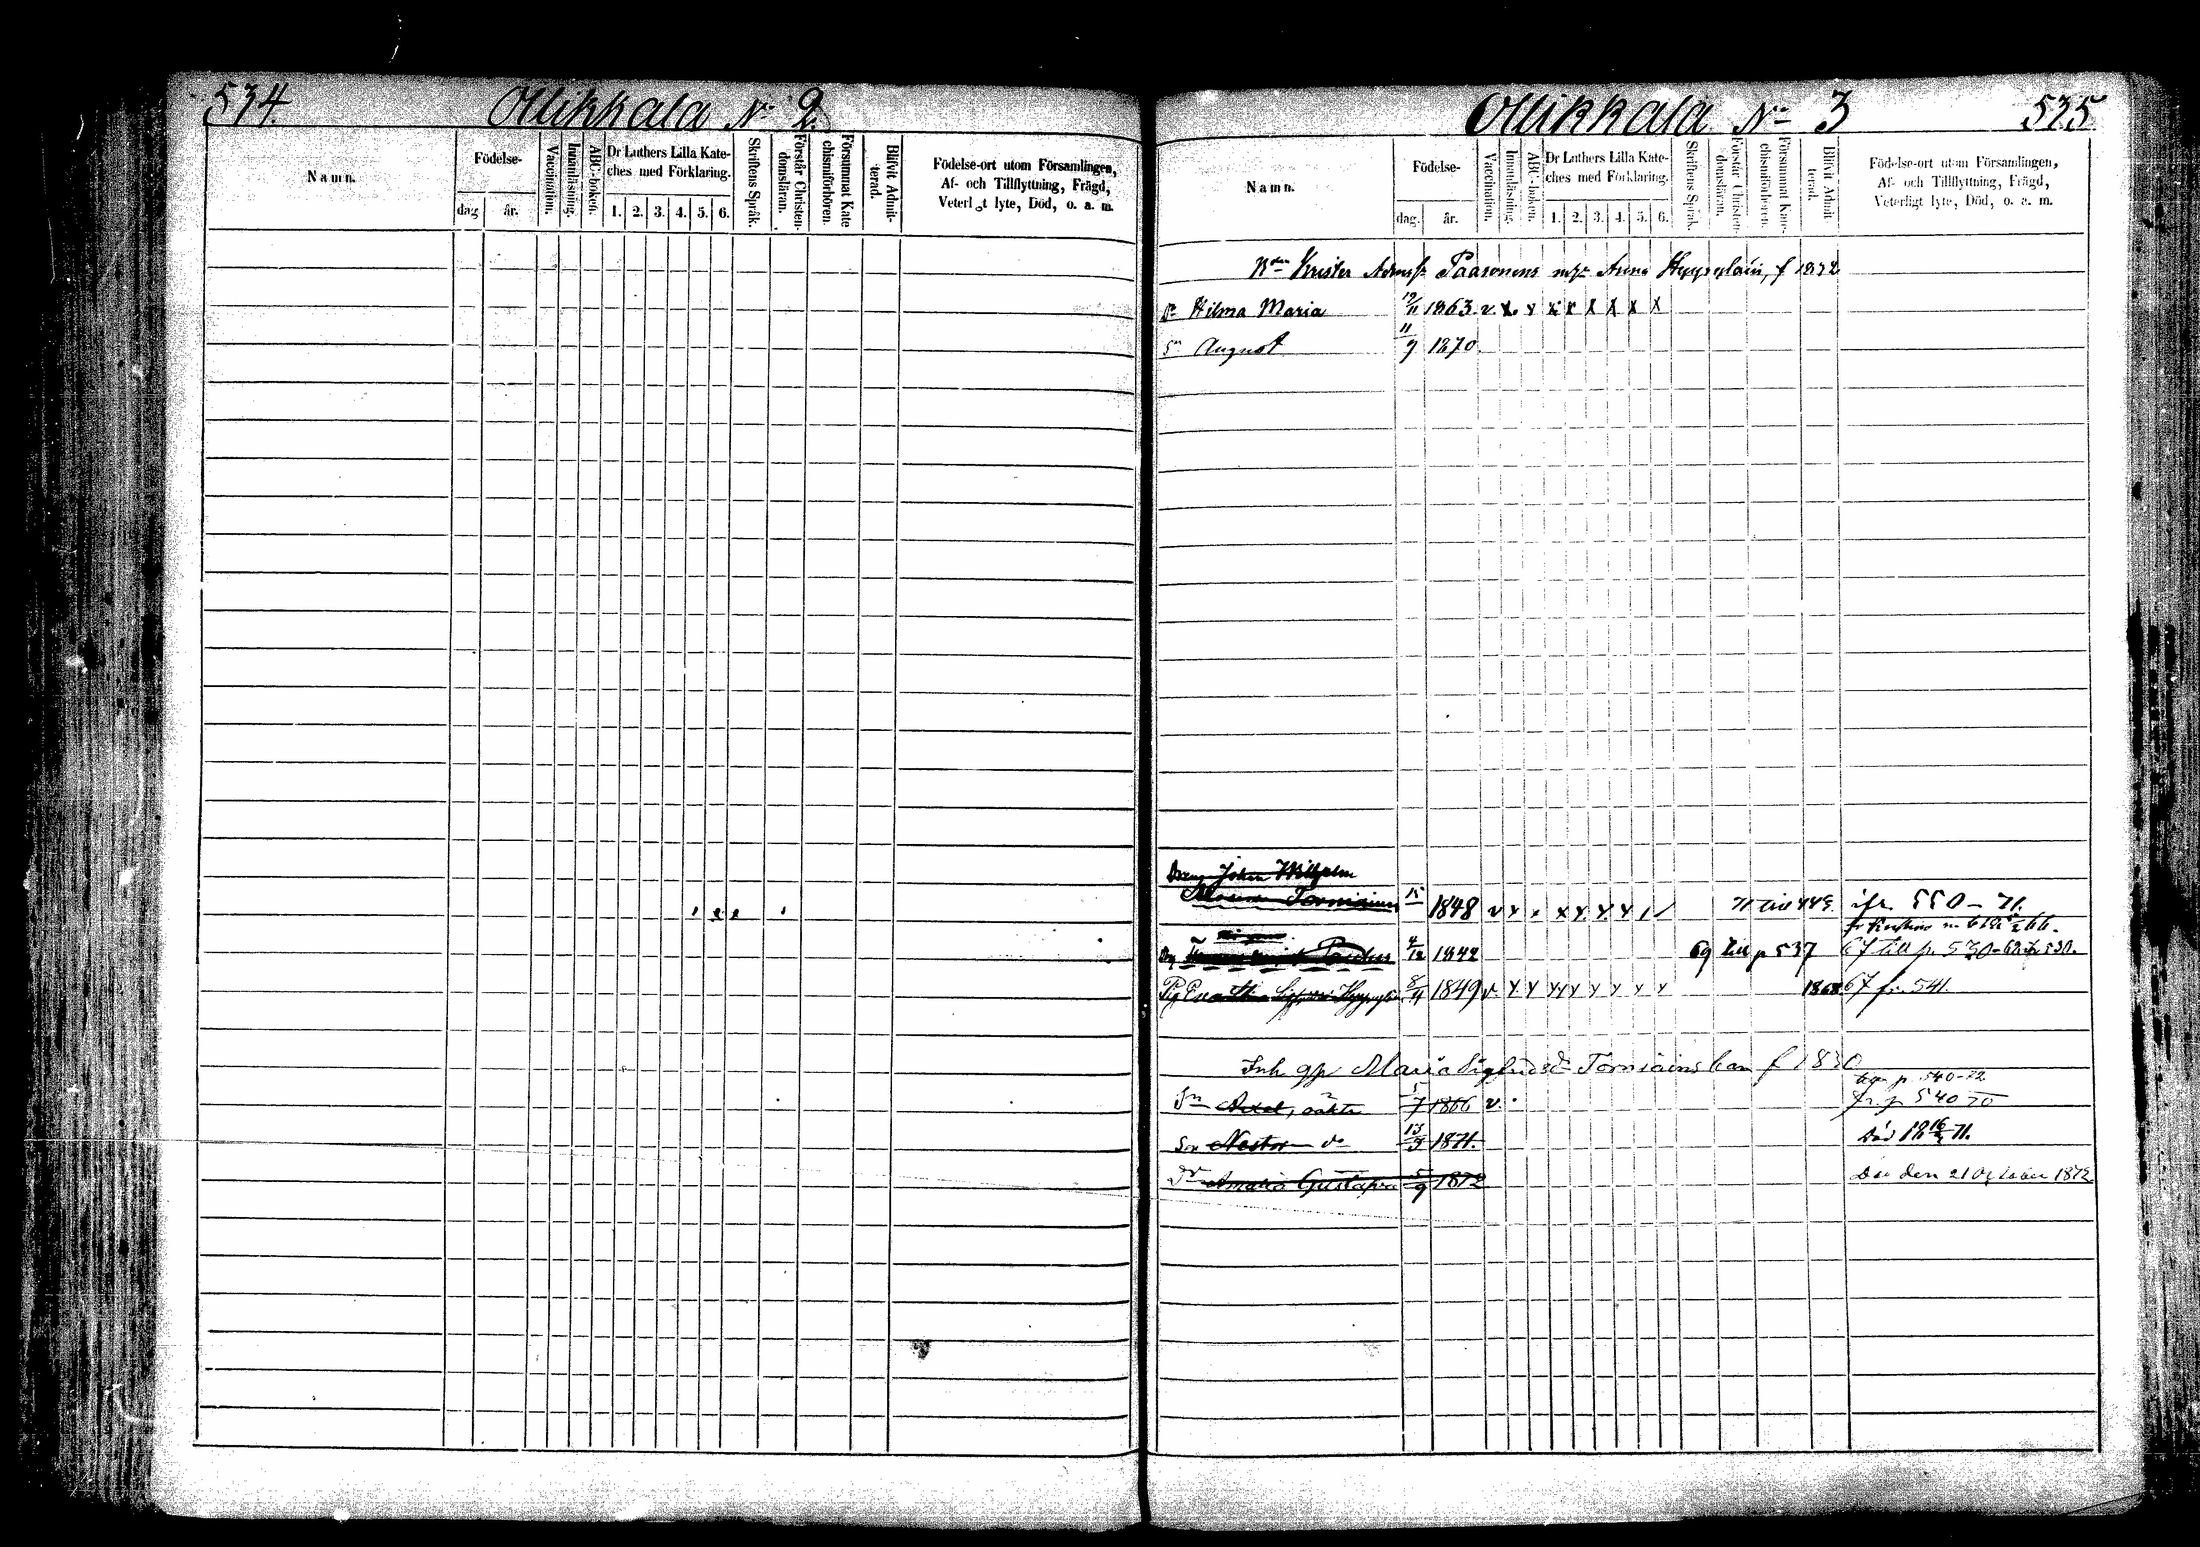 534.
Ollikkala No 2.
Namn.
Födelse-
dag
år.
Vaccination.
Innanläsning.
ABC-boken.
Dr Luthers Lilla Kate-
ches med Förklaring.
1. 2. 3. 4. 5. 6.
Skriftens Språk.
Förstår Christen-
domsläran.
Försummat Kate
chismiförhören.
Blifvit Admit-
terad.
Födelse-ort utom Församlingen,
Af- och Tillflyttning, Frägd,
Veterl t lyte, Död, o. a. m.
Ollikkala No 3
535
Namn.
Födelse-
dag.
år.
Vaccination.
Innanläsning.
ABC-boken.
Dr Luthers Lilla Kate-
ches med Förklaring.
1. 2. 3. 4. 5. 6.
Skriftens Språk.
Förstår Christen-
domsläran.
Försummat Kate-
chismiförhören.
Blifvit Admit
terad.
Födelse-ort utom Församlingen,
Af- och Tillflyttning, Frägd,
Veterligt lyte, Död, o. a. m.
Krister Paasonens Anna f 1832
Hilma Maria 19/11 1863 v x v x x x x x x
Sn August 11/9 1870.
Dreng Johan Wilhelm
Torniainen 15 1848 v x x x x x x 71 till 449. ifr. 550-71.
Paulus 4/12 1842 69 till p 537 67 till p. 530-68 fr 530.
Pig 8/11 1849 v x x x x x x x x 1868 67 fr. 541.
Inh gp Maria Sigfridsdr Torniainskan f 1830
igen p. 540-72
Sn Axel, oäkta 5/7 1866 v. fr. p 540 70
Son Nestor do 13/3 1871. Död 18 16/ 71.
Dr Amalia Gustafva 5/9 1872 Död den 21 October 1872